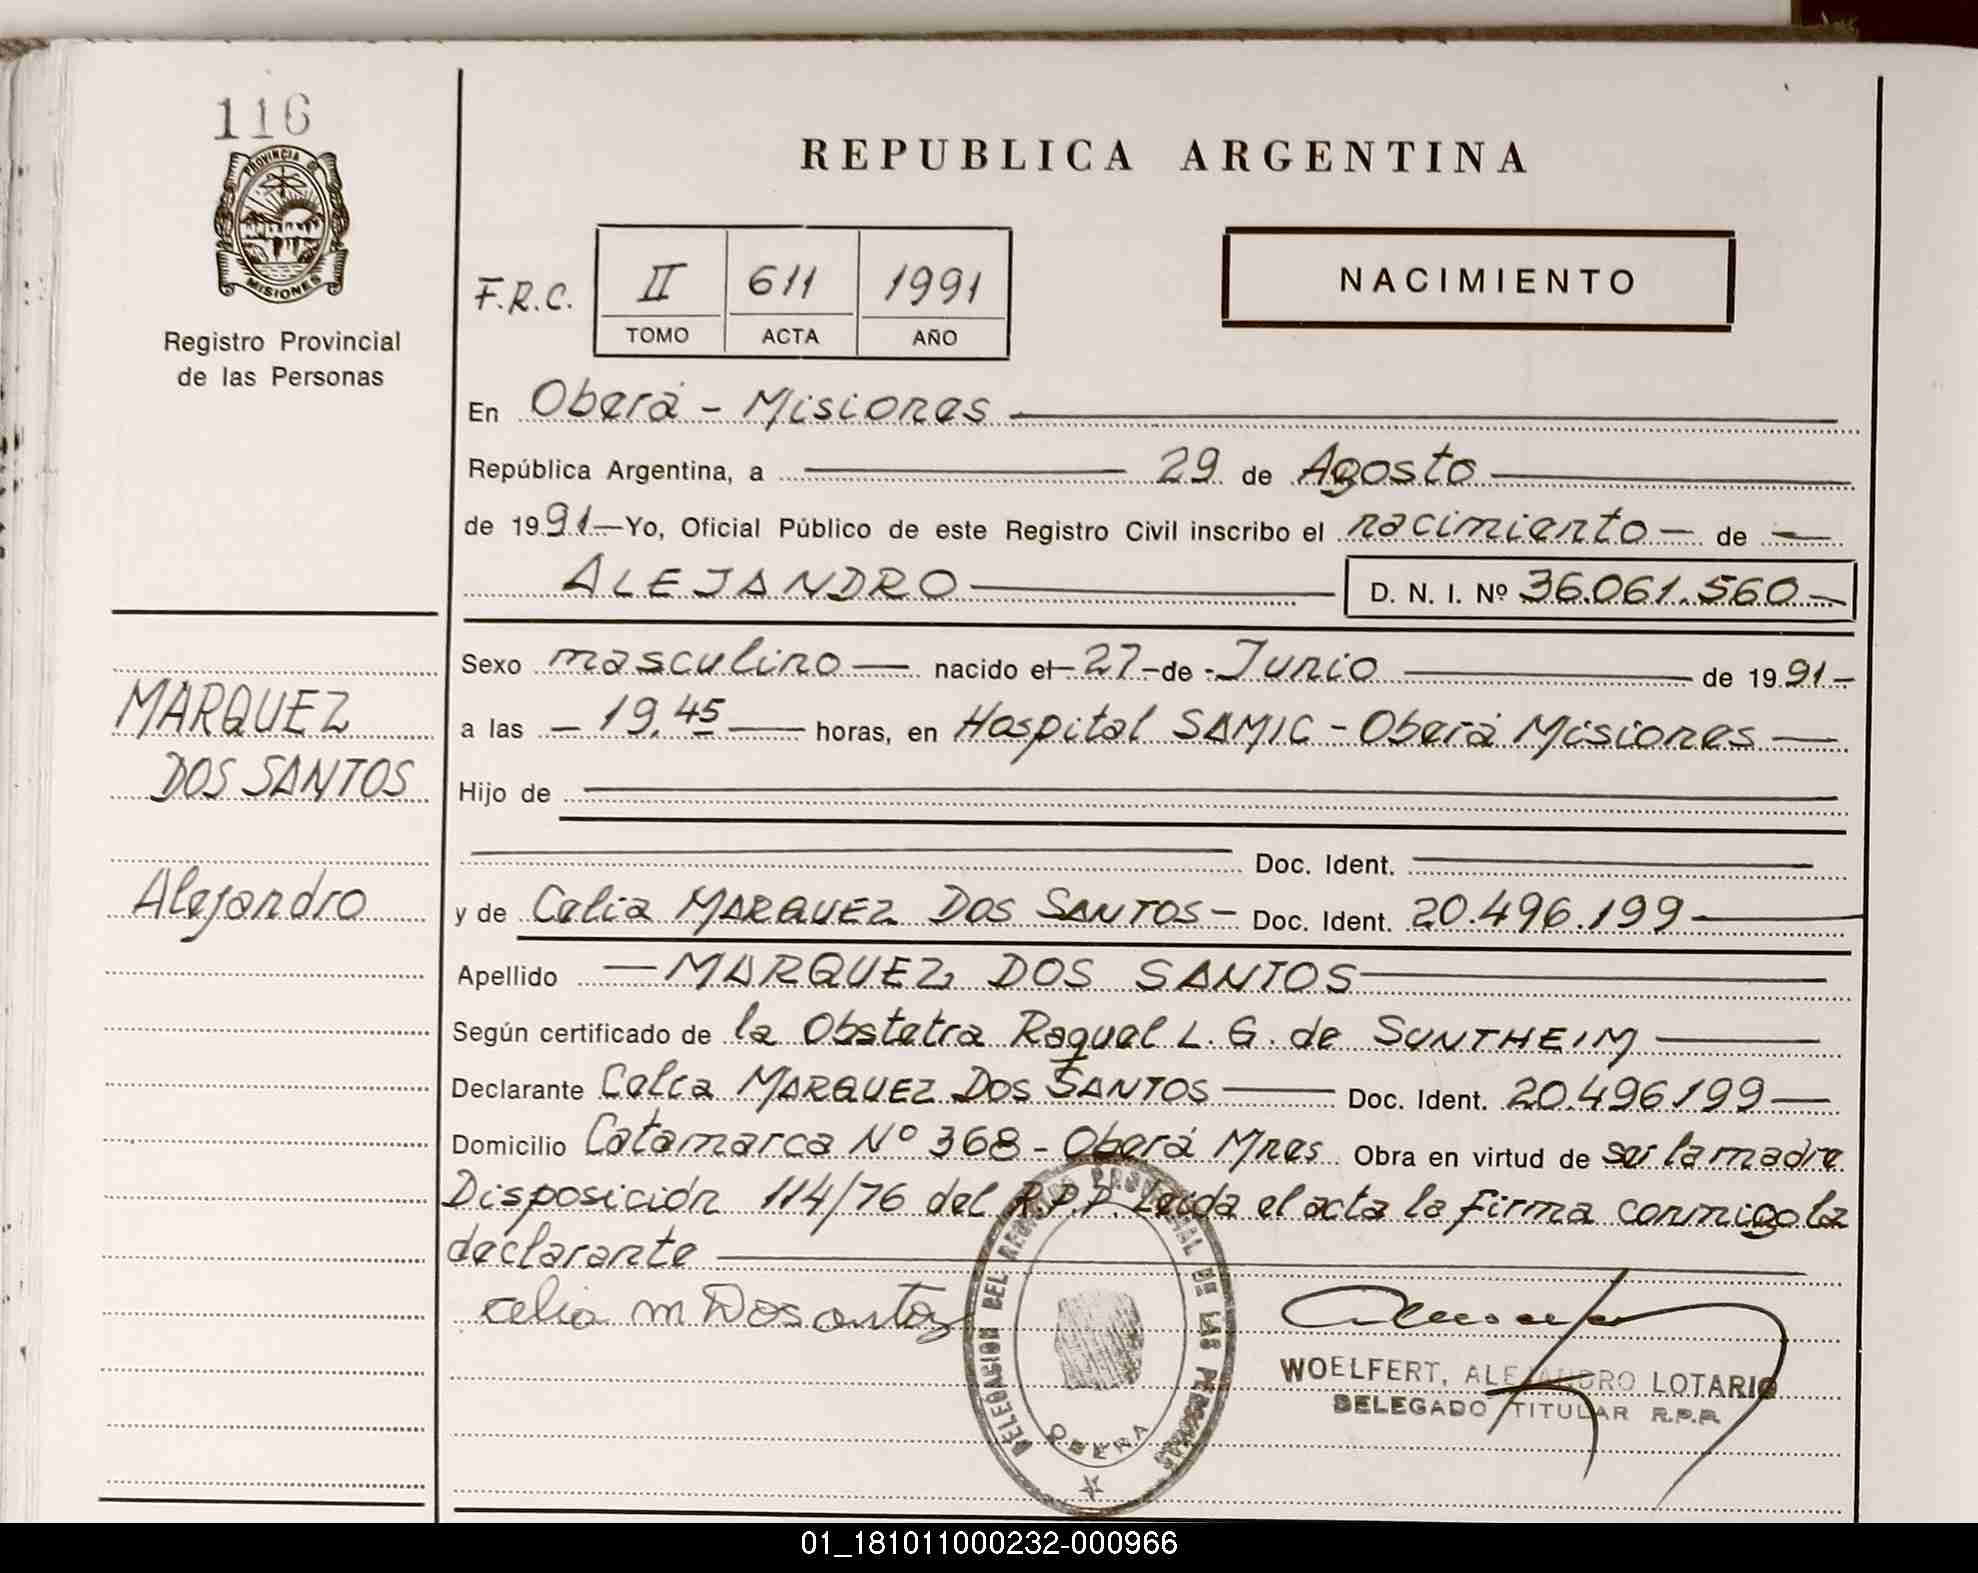 116
PROVINCIA DE
MISIONES
Registro Provincial
de las Personas
REPUBLICA ARGENTINA
F.R.C. II 611 1991
TOMO ACTA AÑO
NACIMIENTO
En Oberá - Misiones
República Argentina, a 29 de Agosto
de 1991 Yo, Oficial Público de este Registro Civil inscribo el nacimiento de
ALEJANDRO D. N. I. Nº 36.061.560
Sexo masculino nacido el 27 de Junio de 1991
a las 19,45 horas, en Hospital SAMIC - Oberá Misiones
Hijo de
Doc. Ident.
y de Celia MARQUEZ DOS SANTOS - Doc. Ident. 20.496.199
Apellido MARQUEZ DOS SANTOS
Según certificado de la Obstetra Raquel L. G. de SUNTHEIM
Declarante Celia MARQUEZ DOS SANTOS Doc. Ident. 20.496.199
Domicilio Catamarca Nº 368 - Oberá Mnes Obra en virtud de ser la madre
Disposición 114/76 del R.P.P. Leida el acta la firma conmigo la
declarante
MARQUEZ
DOS SANTOS
Alejandro
celia m Dos antos
DELEGACION DEL REGISTRO PROVINCIAL DE LAS PERSONAS
OBERA
WOELFERT, ALEJANDRO LOTARIO
DELEGADO TITULAR R.P.P.
01_181011000232-000966